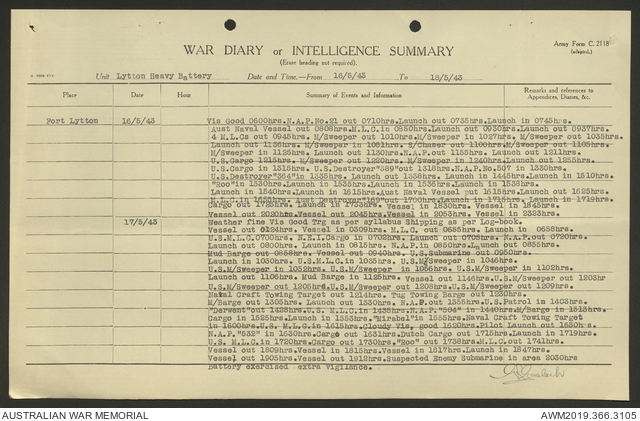 WAR DIARY OR INTELLIGENCE SUMMARY
Army Form C. 2118
(adapted.)
(Erase heading not required).
Unit Lytton Heavy Battery Date and Time.—From 16/5/43 To 18/5/43
Place Date Hour Summary of Events and Information Remarks and references to
Appendices, Diaries, &c.
Fort Lytton 16/5/43 Vis Good 0600hrs.N.A.P.No.21 out 0710hrs.Launch out 0735hrs.Launch in 0745hrs.
Aust Naval Vessel out 0808hrs.M.L.C.in 0850hrs.Launch out 0930hrs.Launch out 0937hrs.
4 M.L.Cs out 0945hrs. M/Sweeper out 1010hrs M/Sweep in 1027hrs. M/Sweeper out 1035hrs
Launch out 1136hrs. M/Sweeper in 1051hrs. S/Chaser out 1100hrs M/Sweeper out 1105hrs
M/Sweeper in 1125hrs. Launch out 1130hrs.N.A.P.out 1155hrs. Launch out 1211hrs.
U.S.Cargo 1215hrs. M/Sweeper out 1220hrs. M/Sweeper in 1240hrs.Launch out 1255hrs.
U.S.Cargo in 1315hrs. U.S.Destroyer"389"out 1318hrs.N.A.P.No.507 in 1330hrs.
U.S.Destroyer"364"in 1335hrs. Launch out 1338hrs. Launch in 1445hrs.Launch in 1510hrs.
"Roo"in 1530hrs.Launch in 1535hrs. Launch in 1536hrs. Launch in 1538hrs.
Launch in 1540hrs.Launch in 1615hrs.Aust Naval Vessel out 1615hrs.Launch out 1625hrs.
M.L.C.in 1635hrs. Aust Destroyer"169"out 1700hrs.Launch in 1715hrs.Launch in 1719hrs.
Cargo out 1725hrs. Launch in 1735hrs. Vessel in 1830hrs. Vessel in 1843hrs.
Vessel out 2020hrs.Vessel out 2045hrs.Vessel in 2053hrs. Vessel in 2323hrs.
17/5/43 Weather fine Vis Good Trg as per syllabus Shipping as per Log-book.
Vessel out 0124hrs. Vessel in 0309hrs. M.L.C. out 0655hrs. Launch in 0655hrs
U.S.MLC.0700hrs. N.S.I.Cargo in 0702hrs.Launch out 0708hrs. N.A.P. out 0720hrs.
Launch out 0800hrs. Launch in 0815hrs. N.A.P.in 0850hrs.Launch out 0855hrs.
Mud Barge out 0858hrs. Vessel out 0940hrs. U.S.Submarine out 0950hrs.
Launch in 1030hrs. U.S.M.L.C.in 1035hrs. U.S.M/Sweeper in 1046hrs.
U.S.M/Sweeper in 1052hrs. U.S.M/Sweeper in 1056hrs. U.S.M/Sweeper in 1102hrs.
Launch out 1106hrs. Mud Barge in 1125hrs. Vessel in 1146hrs. U.S.M/Sweeper out 1203hr
U.S.M/Sweeper out 1205hrs U.S.M/Sweeper out 1208hrs. U.S.M/Sweeper out 1209hrs.
Naval Craft Towing Target out 1214hrs. Tug Towing Barge out 1230hrs.
M/Barge out 1305hrs. Launch out 1330hrs. N.A.P. out 1358hrs. U.S.Patrol in 1403hrs.
"Derwent"out 1428hrs. U.S. M.L.C.in 1435hrs. N.A.P."504"in 1440hrs.M/Barge in 1513hrs.
Cargo in 1525hrs. Launch in 1553hrs."Mirabel"in 1558hrs.Naval Craft Towing Target
in 1600hrs.U.S. M.L.C.in 1615hrs.Cloudy Vis, good 1620hrs.Pilot Launch out 1630hrs.
N.A.P."532" in 1630hrs.Cargo out 1631hrs.Dutch Cargo out 1715hrs.Launch in 1719hrs.
U.S. M.L.C.in 1720hrs.Cargo in 1730hrs."Roo" out 1738hrs.M.L.C. out 1741hrs.
Vessel out 1809hrs.Vessel in 1815hrs.Vessel in 1817hrs.Launch in 1847hrs.
Vessel out 1905hrs.Vessel out 1912hrs.Suspected Enemy Submarine in area 2030hrs
Battery exercised extra vigilance.
AUSTRALIAN WAR MEMORIAL AWM2019.366.3105